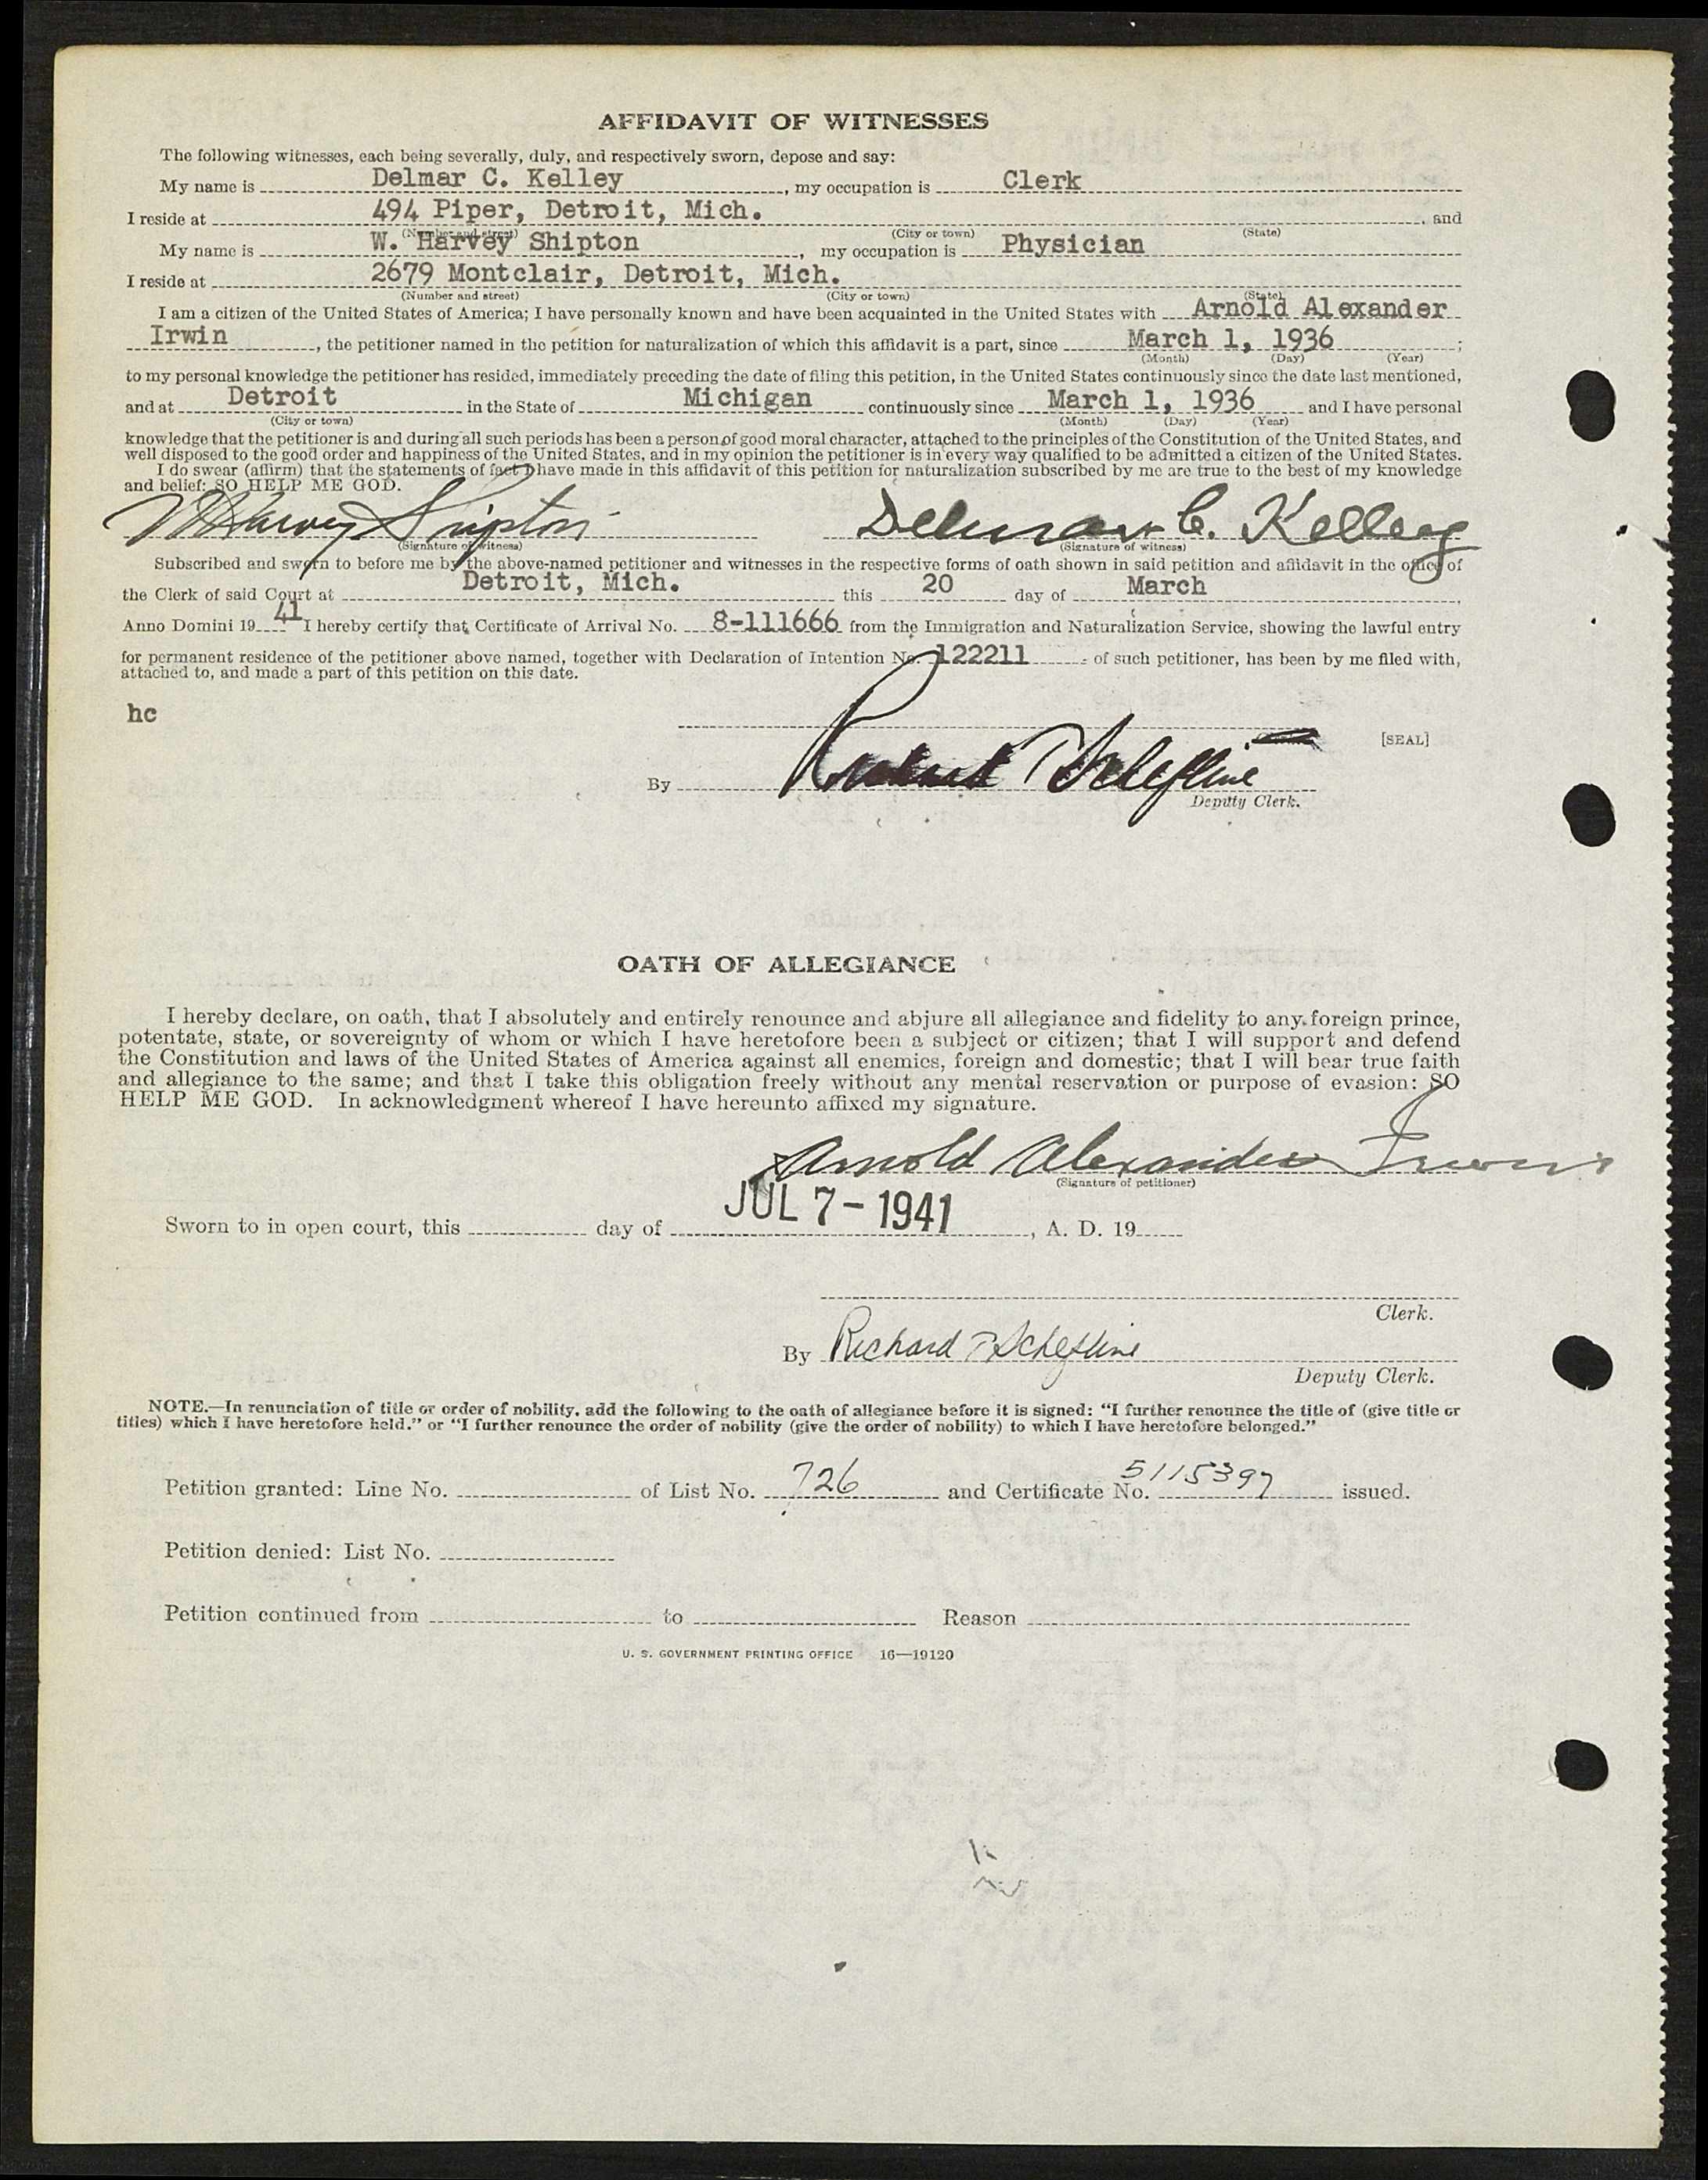 AFFIDAVIT OF WITNESSES
The following witnesses, each being severally, duly, and respectively sworn, depose and say:
My name is Delmar C. Kelley, my occupation is Clerk
I reside at 494 Piper, Detroit, Mich., and
(Number and street) (City or town) (State)
My name is W. Harvey Shipton, my occupation is Physician
I reside at 2679 Montclair, Detroit, Mich.
(Number and street) (City or town) (State)
I am a citizen of the United States of America; I have personally known and have been acquainted in the United States with Arnold Alexander
Irwin, the petitioner named in the petition for naturalization of which this affidavit is a part, since March 1, 1936;
(Month) (Day) (Year)
to my personal knowledge the petitioner has resided, immediately preceding the date of filing this petition, in the United States continuously since the date last mentioned,
and at Detroit in the State of Michigan continuously since March 1, 1936 and I have personal
(City or town) (Month) (Day) (Year)
knowledge that the petitioner is and during all such periods has been a person of good moral character, attached to the principles of the Constitution of the United States, and
well disposed to the good order and happiness of the United States, and in my opinion the petitioner is in every way qualified to be admitted a citizen of the United States.
I do swear (affirm) that the statements of fact I have made in this affidavit of this petition for naturalization subscribed by me are true to the best of my knowledge
and belief: SO HELP ME GOD.
W Harvey Shipton Delmar C. Kelley
(Signature of witness) (Signature of witness)
Subscribed and sworn to before me by the above-named petitioner and witnesses in the respective forms of oath shown in said petition and affidavit in the office of
the Clerk of said Court at Detroit, Mich. this 20 day of March,
Anno Domini 19 41 I hereby certify that Certificate of Arrival No. 8-111666 from the Immigration and Naturalization Service, showing the lawful entry
for permanent residence of the petitioner above named, together with Declaration of Intention No. 122211 of such petitioner, has been by me filed with,
attached to, and made a part of this petition on this date.
hc
[SEAL]
By Richard T Schefline
Deputy Clerk.
OATH OF ALLEGIANCE
I hereby declare, on oath, that I absolutely and entirely renounce and abjure all allegiance and fidelity to any foreign prince,
potentate, state, or sovereignty of whom or which I have heretofore been a subject or citizen; that I will support and defend
the Constitution and laws of the United States of America against all enemies, foreign and domestic; that I will bear true faith
and allegiance to the same; and that I take this obligation freely without any mental reservation or purpose of evasion: SO
HELP ME GOD. In acknowledgment whereof I have hereunto affixed my signature.
Arnold Alexander Irwin
(Signature of petitioner)
Sworn to in open court, this day of JUL 7 - 1941, A. D. 19
Clerk.
By Richard T Schefline
Deputy Clerk.
NOTE.—In renunciation of title or order of nobility, add the following to the oath of allegiance before it is signed: "I further renounce the title of (give title or
titles) which I have heretofore held." or "I further renounce the order of nobility (give the order of nobility) to which I have heretofore belonged."
Petition granted: Line No. of List No. 726 and Certificate No. 5115397 issued.
Petition denied: List No.
Petition continued from to Reason
U. S. GOVERNMENT PRINTING OFFICE 16—19120